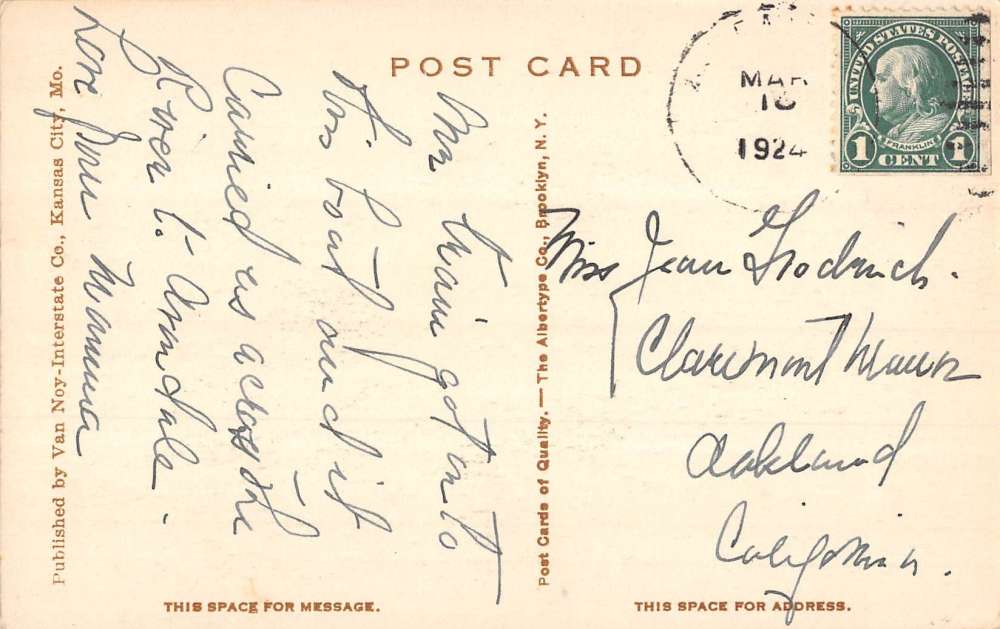 POST CARD
MAR
18
1924
UNITED STATES POSTAGE
FRANKLIN
1 CENT 1
Our train got onto
this boat and it
Carried us across the
River to Avondale.
Love from Mamma
Miss Jean
Claremont Manor
Oakland
California.
Published by Van Noy-Interstate Co., Kansas City, Mo.
Post Cards of Quality. — The Albertype Co., Brooklyn, N. Y.
THIS SPACE FOR MESSAGE.
THIS SPACE FOR ADDRESS.